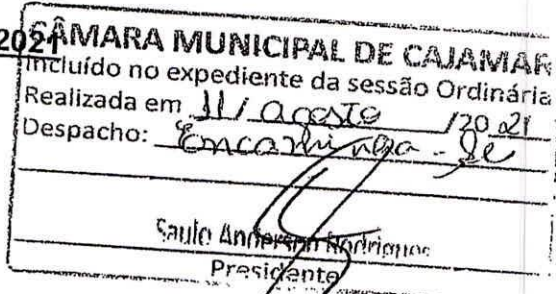 2021
CÂMARA MUNICIPAL DE CAJAMAR
Incluído no expediente da sessão Ordinária
Realizada em 11 / agosto /20 21
Despacho: Encaminha-se
Saulo Anderson Rodrigues
Presidente